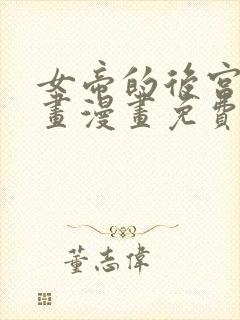 女帝的後宮
畫漫畫免費
董志偉